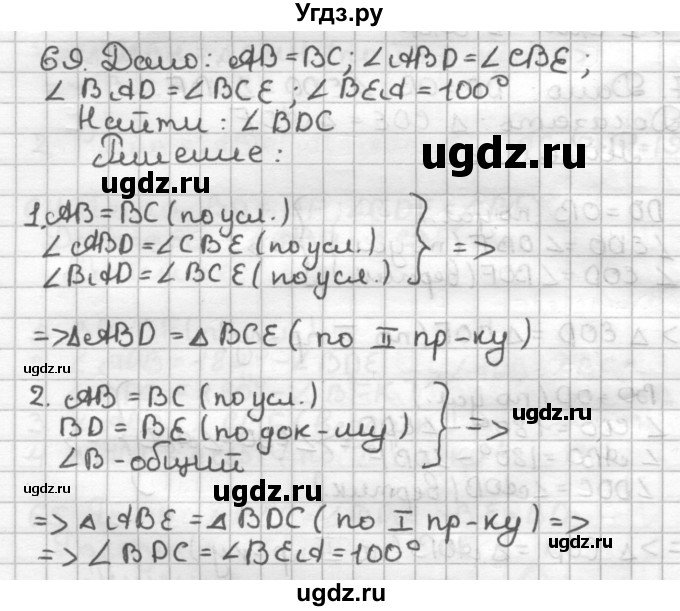 Угдз.ру
69. Дано: AB = BC; ∠ABD = ∠CBE;
∠BAD = ∠BCE; ∠BEA = 100°
Найти: ∠BDC
Решение:
ugdz.ru
ugdz.ru
1. AB = BC (по усл.)
∠ABD = ∠CBE (по усл.)
∠BAD = ∠BCE (по усл.)
} =>
=> △ABD = △BCE (по II пр-ку)
ugdz.ru
2. AB = BC (по усл.)
BD = BE (по док-му)
∠B - общий
} =>
ugdz.ru
ugdz.ru
ugdz.ru
=> △ABE = △BDC (по I пр-ку) =>
=> ∠BDC = ∠BEA = 100°
ugdz.ru
ugdz.ru